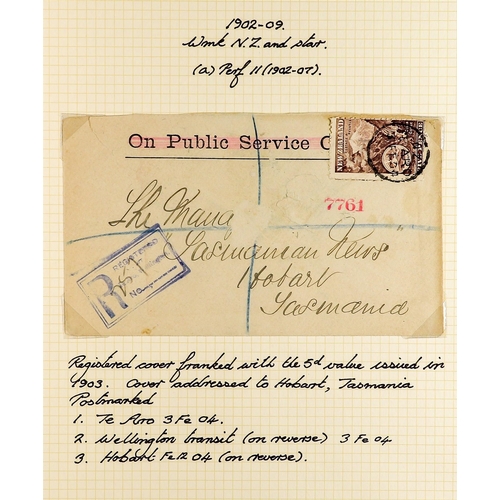 1902-09.
Wmk N.Z. and star.
(a) Perf 11 (1902-07).
On Public Service
NEW ZEALAND
7761
The Mana
"Tasmanian News"
Hobart
Tasmania
REGISTERED
R
No.
Registered cover franked with the 5d value issued in
1903. Cover addressed to Hobart, Tasmania
Postmarked
1. Te Aro 3 Fe 04.
2. Wellington transit (on reverse) 3 Fe 04
3. Hobart Fe 12 04 (on reverse).